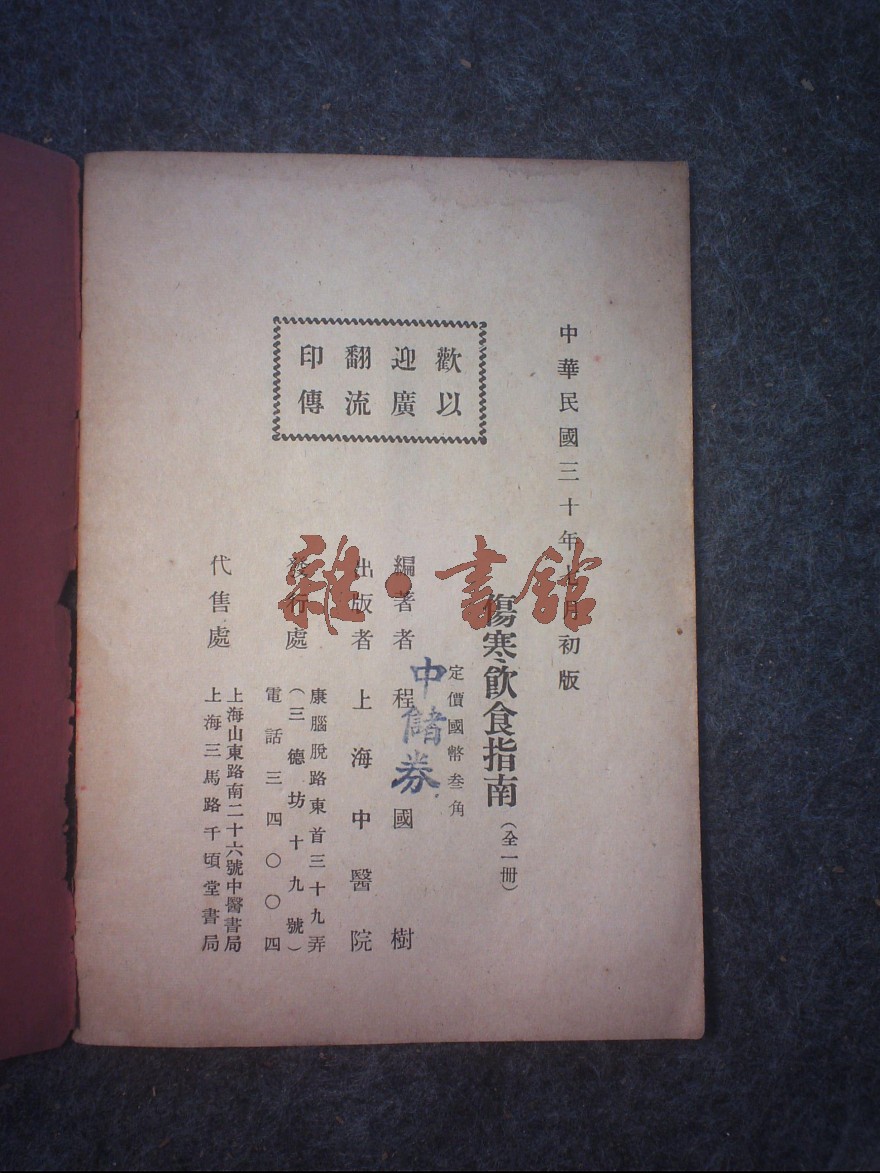 中華民國三十年七月初版
歡迎翻印
以廣流傳
傷寒飲食指南（全一冊）
定價國幣叁角
中儲券
編著者 程國樹
出版者 上海中醫院
發行處 康腦脫路東首三十九弄
（三德坊十九號）
電話三四〇〇四
代售處 上海山東路南二十六號中醫書局
上海三馬路千頃堂書局
雜·書館